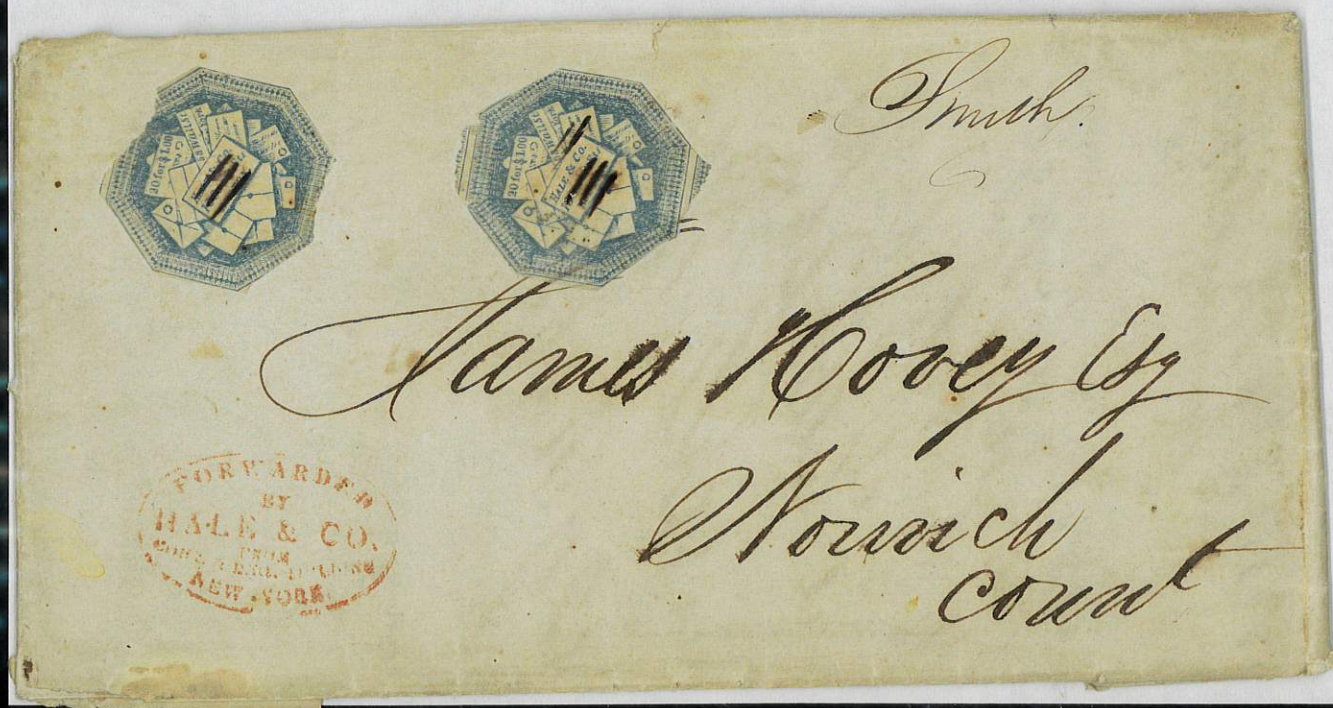 Smith.
20 for $1.00
20 for $1.00
HALE & Co.
James Hovey Esq
Norwich
Connt
FORWARDED
BY
HALE & CO.
FROM
NEW-YORK